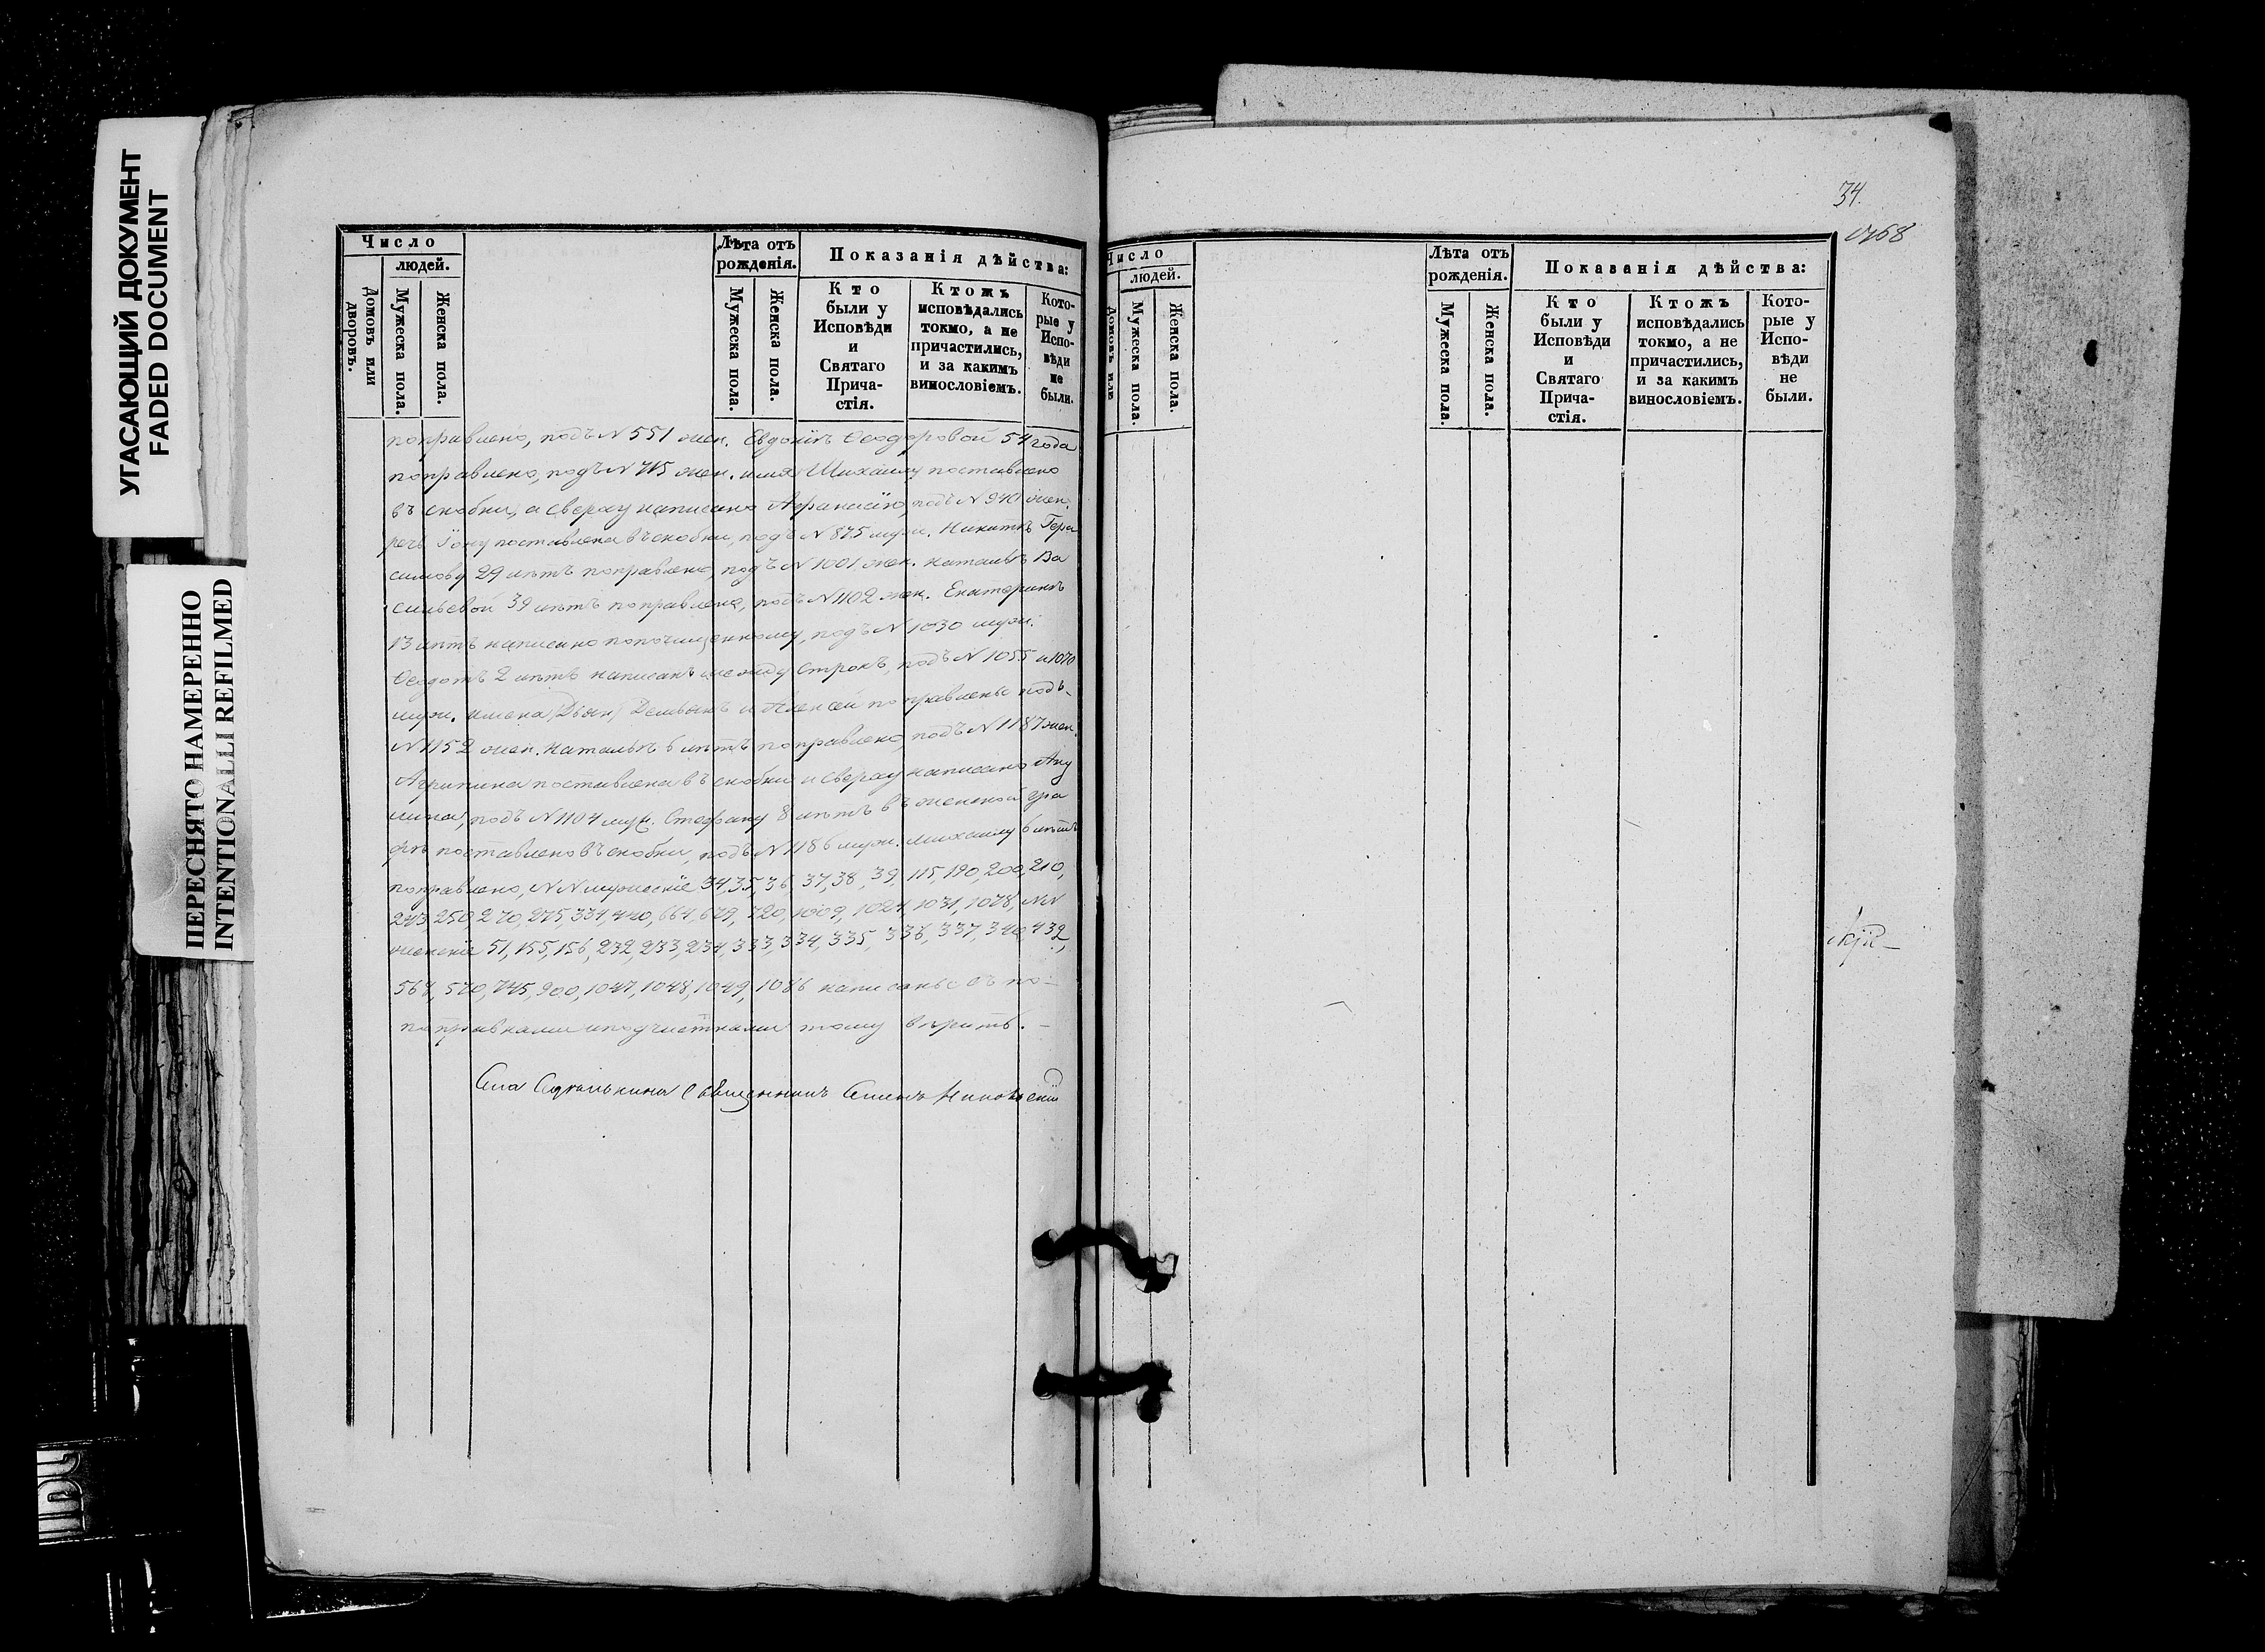 УГАСАЮЩИЙ ДОКУМЕНТ
FADED DOCUMENT
ПЕРЕСНЯТО НАМЕРЕННО
INTENTIONALLI REFILMED
Число
людей.
Домовъ или дворовъ.
Мужеска пола.
Женска пола.
Лѣта отъ
рожденія.
Мужеска пола.
Женска пола.
Показанія дѣйства:
Кто
были у
Исповѣди
и
Святаго
Прича-
стія.
Ктожъ
исповѣдались
токмо, а не
причастились,
и за какимъ
винословіемъ.
Кото-
рые у
Испо-
вѣди
не
были.
поправлено, подъ N 551 жен. Евдокіѣ Ѳеодоровой 54 года
поправлено, подъ N 715 жен. имя Михаилу поставлено
въ скобки, а сверху написано Аѳанасію, подъ N 940 жен.
речь поставлена въ скобки, подъ N 875 муж. Никитѣ Гера
симову 29 лѣтъ поправлено, подъ N 1001 жен. Натальѣ Ва
сильевой 39 лѣтъ поправлено, подъ N 1102 жен. Екатеринѣ
13 лѣтъ написано по почищенному, подъ N 1030 муж.
Ѳеодотъ 2 лѣтъ написанъ между строкъ, подъ N 1055 и 1070
муж. имена Демьянъ и Алексей поправлены подъ
N 1152 жен. Натальѣ 6 лѣтъ поправлено, подъ N 1187 жен.
Агрипина поставлена въ скобки и сверху написано Аку
лина, подъ N 1104 муж. Стефану 8 лѣтъ въ женской гра
фѣ поставлено въ скобки, подъ N 1186 муж. Михаилу 6 лѣтъ
поправлено, NN мужескіе 34, 35, 36, 37, 38, 39, 115, 190, 200, 210,
243, 250, 270, 275, 331, 440, 664, 679, 720, 1009, 1021, 1031, 1078, NN
женскіе 51, 155, 156, 232, 233, 234, 333, 334, 335, 336, 337, 340, 432,
568, 570, 745, 900, 1047, 1048, 1049, 1086 написаны съ по-
поправками и подчистками тому вѣрить. –
Села Священникъ Симеонъ
34.
768
Число
людей.
Домовъ или
Мужеска пола.
Женска пола.
Лѣта отъ
рожденія.
Мужеска пола.
Женска пола.
Показанія дѣйства:
Кто
были у
Исповѣди
и
Святаго
Прича-
стія.
Ктожъ
исповѣдались
токмо, а не
причастились,
и за какимъ
винословіемъ.
Кото-
рые у
Испо-
вѣди
не
были.